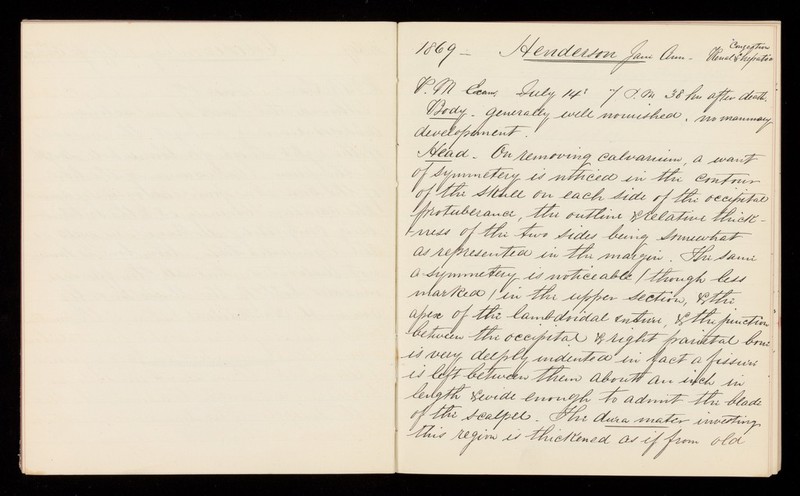 1869 - Henderson Jane Ann - Congestion Renal & hepatic
P.M Exam, July 14: 7 P M 38 hrs after death.
Body - generally well nourished, no mammary
development.
Head - On removing calvarium, a want
of symmetery is noticed in the contour
of the skull on each side of the occipital
protuberance, the outline & relative thick-
ness of the two sides being somewhat
as represented in the margin. The same
a-symmetery is noticeable (though less
marked) in the upper section, & the
apex of the lambdoidal suture, & the junction
between the occipital & right parietal bone
is very deeply indented in fact a fissure
is left between them about an inch in
length & wide enough to admit the blade
of the scalpel. The dura mater investing
this region is thickened as if from old